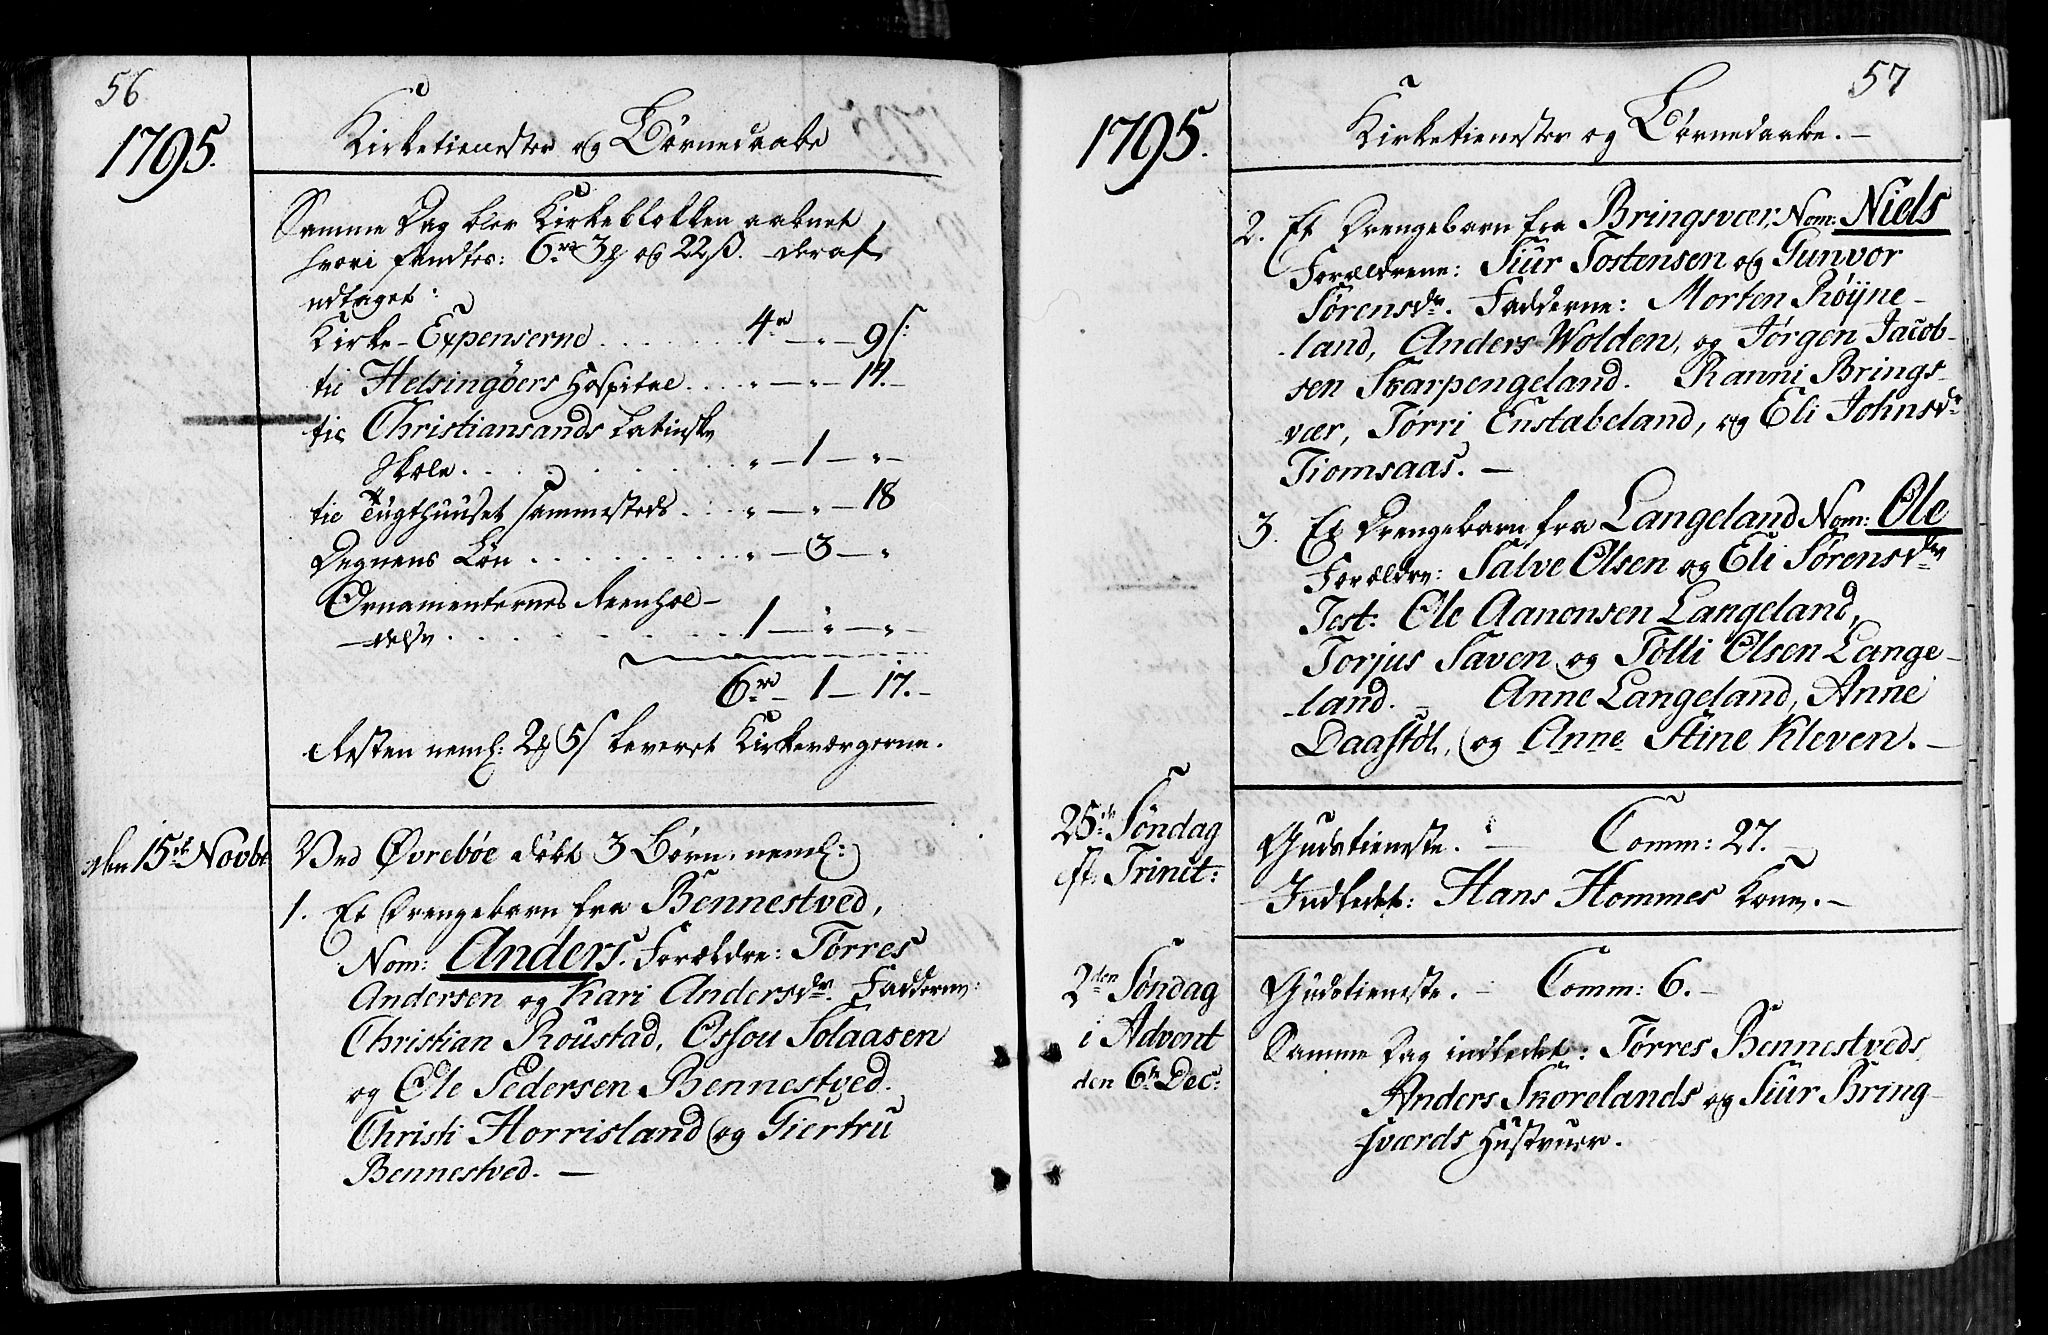 56
1795.
Kirketienester og Børnedaabe
Samme Dag blev Kirkeblokken aabnet
hvori fandtes: 6 rd 3 ₰ og 22 ß. deraf
udtaget:
Kirke-Expenserne . . . . . . 4 rd — „ — 9 ß:
til Helsingøers Hospital . . . „ — „ — 14. —
til Christiansands Latinske
Skole. . . . . . . . . „ — 1 — „ —
til Tugthuuset sammesteds . . . „ — „ — 18
Degnens Løn . . . . . . . . „ — 3 — „
Ornamenternes Reenhol-
delse . . . . . . . . . 1 — „ — „ —
6 rd — 1 — 17. —
Resten neml: 2 ₰ 5 ß leveret Kirkeværgerne.
den 15de Novbr
Ved Øvrebøe døbt 3 Børn, neml:
1. Et Drengebarn fra Bennestved,
Nom: Anders. Forældre: Tørres
Andersen og Kari Andersdr. Fadderne:
Christian Roüstad, Ossou Solaasen
og Ole Pedersen Bennestved.
Christi Horrisland og Giertru
Bennestved. —
57
1795.
Kirketienester og Børnedaabe. —
2. Et Drengebarn fra Bringsvær, Nom: Niels
Forældrene: Siur Tostensen og Gunvor
Sørensdr. Fadderne: Morten Röÿne-
land, Anders Wolden, og Jørgen Jacob-
sen Skarpengeland. Ranni Brings-
vær, Tørri Enstabeland, og Eli Johnsdr
Tiomsaas. —
3. Et Drengebarn fra Langeland Nom: Ole
Forældre: Salve Olsen og Eli Sørensdr
Test: Ole Aanensen Langeland,
Torjus Saven og Tolli Olsen Lange-
land. — Anne Langeland, Anne
Daastøl, og Anne Stine Kleven. —
25de Søndag
eft: Trinit:
Gudstieneste. — Comm: 27. —
Indledet: Hans Hommes Kone. —
2den Søndag
i Advent
den 6te Dec:
Gudstieneste. — Comm: 6. —
Samme Dag indledet: Tørres Bennestveds,
Anders Skorelands og Siur Bring-
sværds Hustruer.